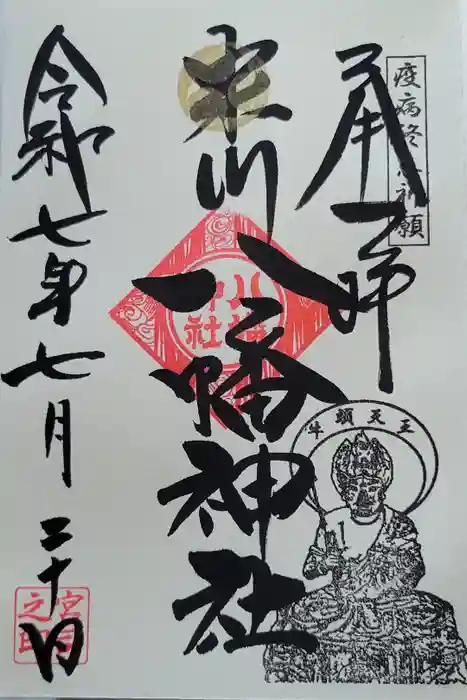 疫病終息祈願
奉拝
川八幡神社
牛頭天王
令和七年七月二十日
宮司之印